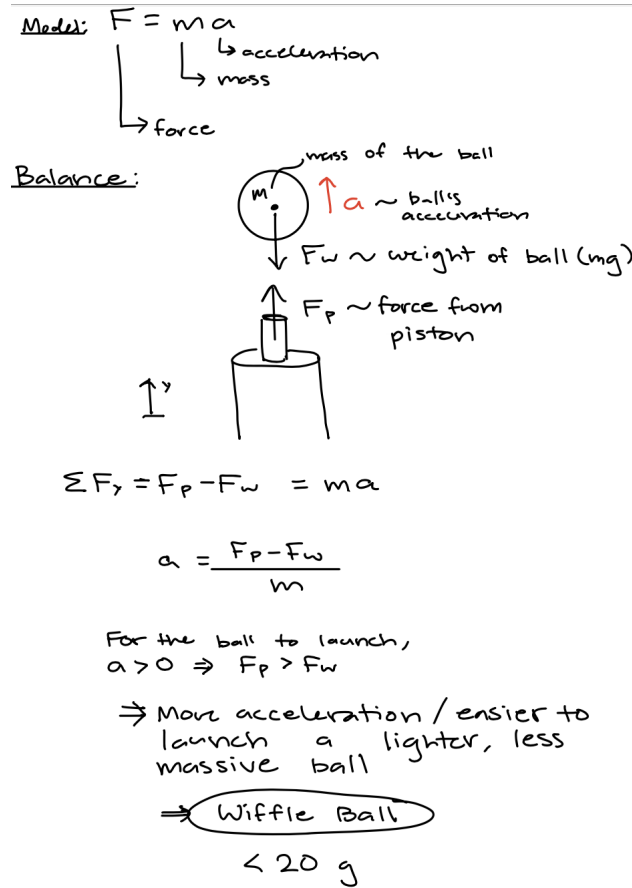 Model: F = ma
acceleration
mass
force
Balance:
mass of the ball
m
a ~ ball's
acceleration
Fw ~ weight of ball (mg)
Fp ~ force from
piston
y
ΣFy = Fp - Fw = ma
a = (Fp - Fw) / m
For the ball to launch,
a > 0 ⇒ Fp > Fw
⇒ More acceleration / easier to
launch a lighter, less
massive ball
⇒ Wiffle Ball
< 20 g